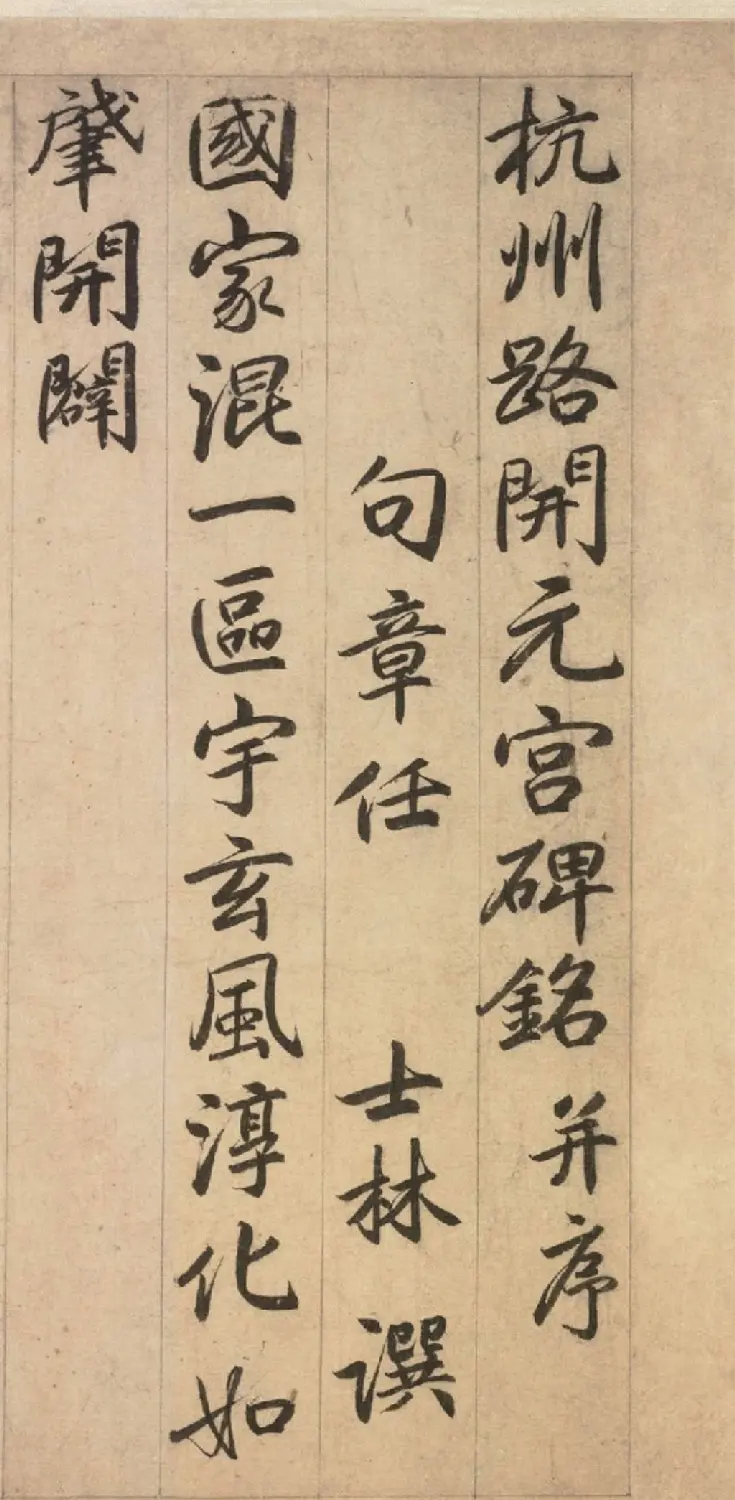 杭州路開元宮碑銘并序
句章任士林譔
國家混一區宇玄風淳化如
肇開闢